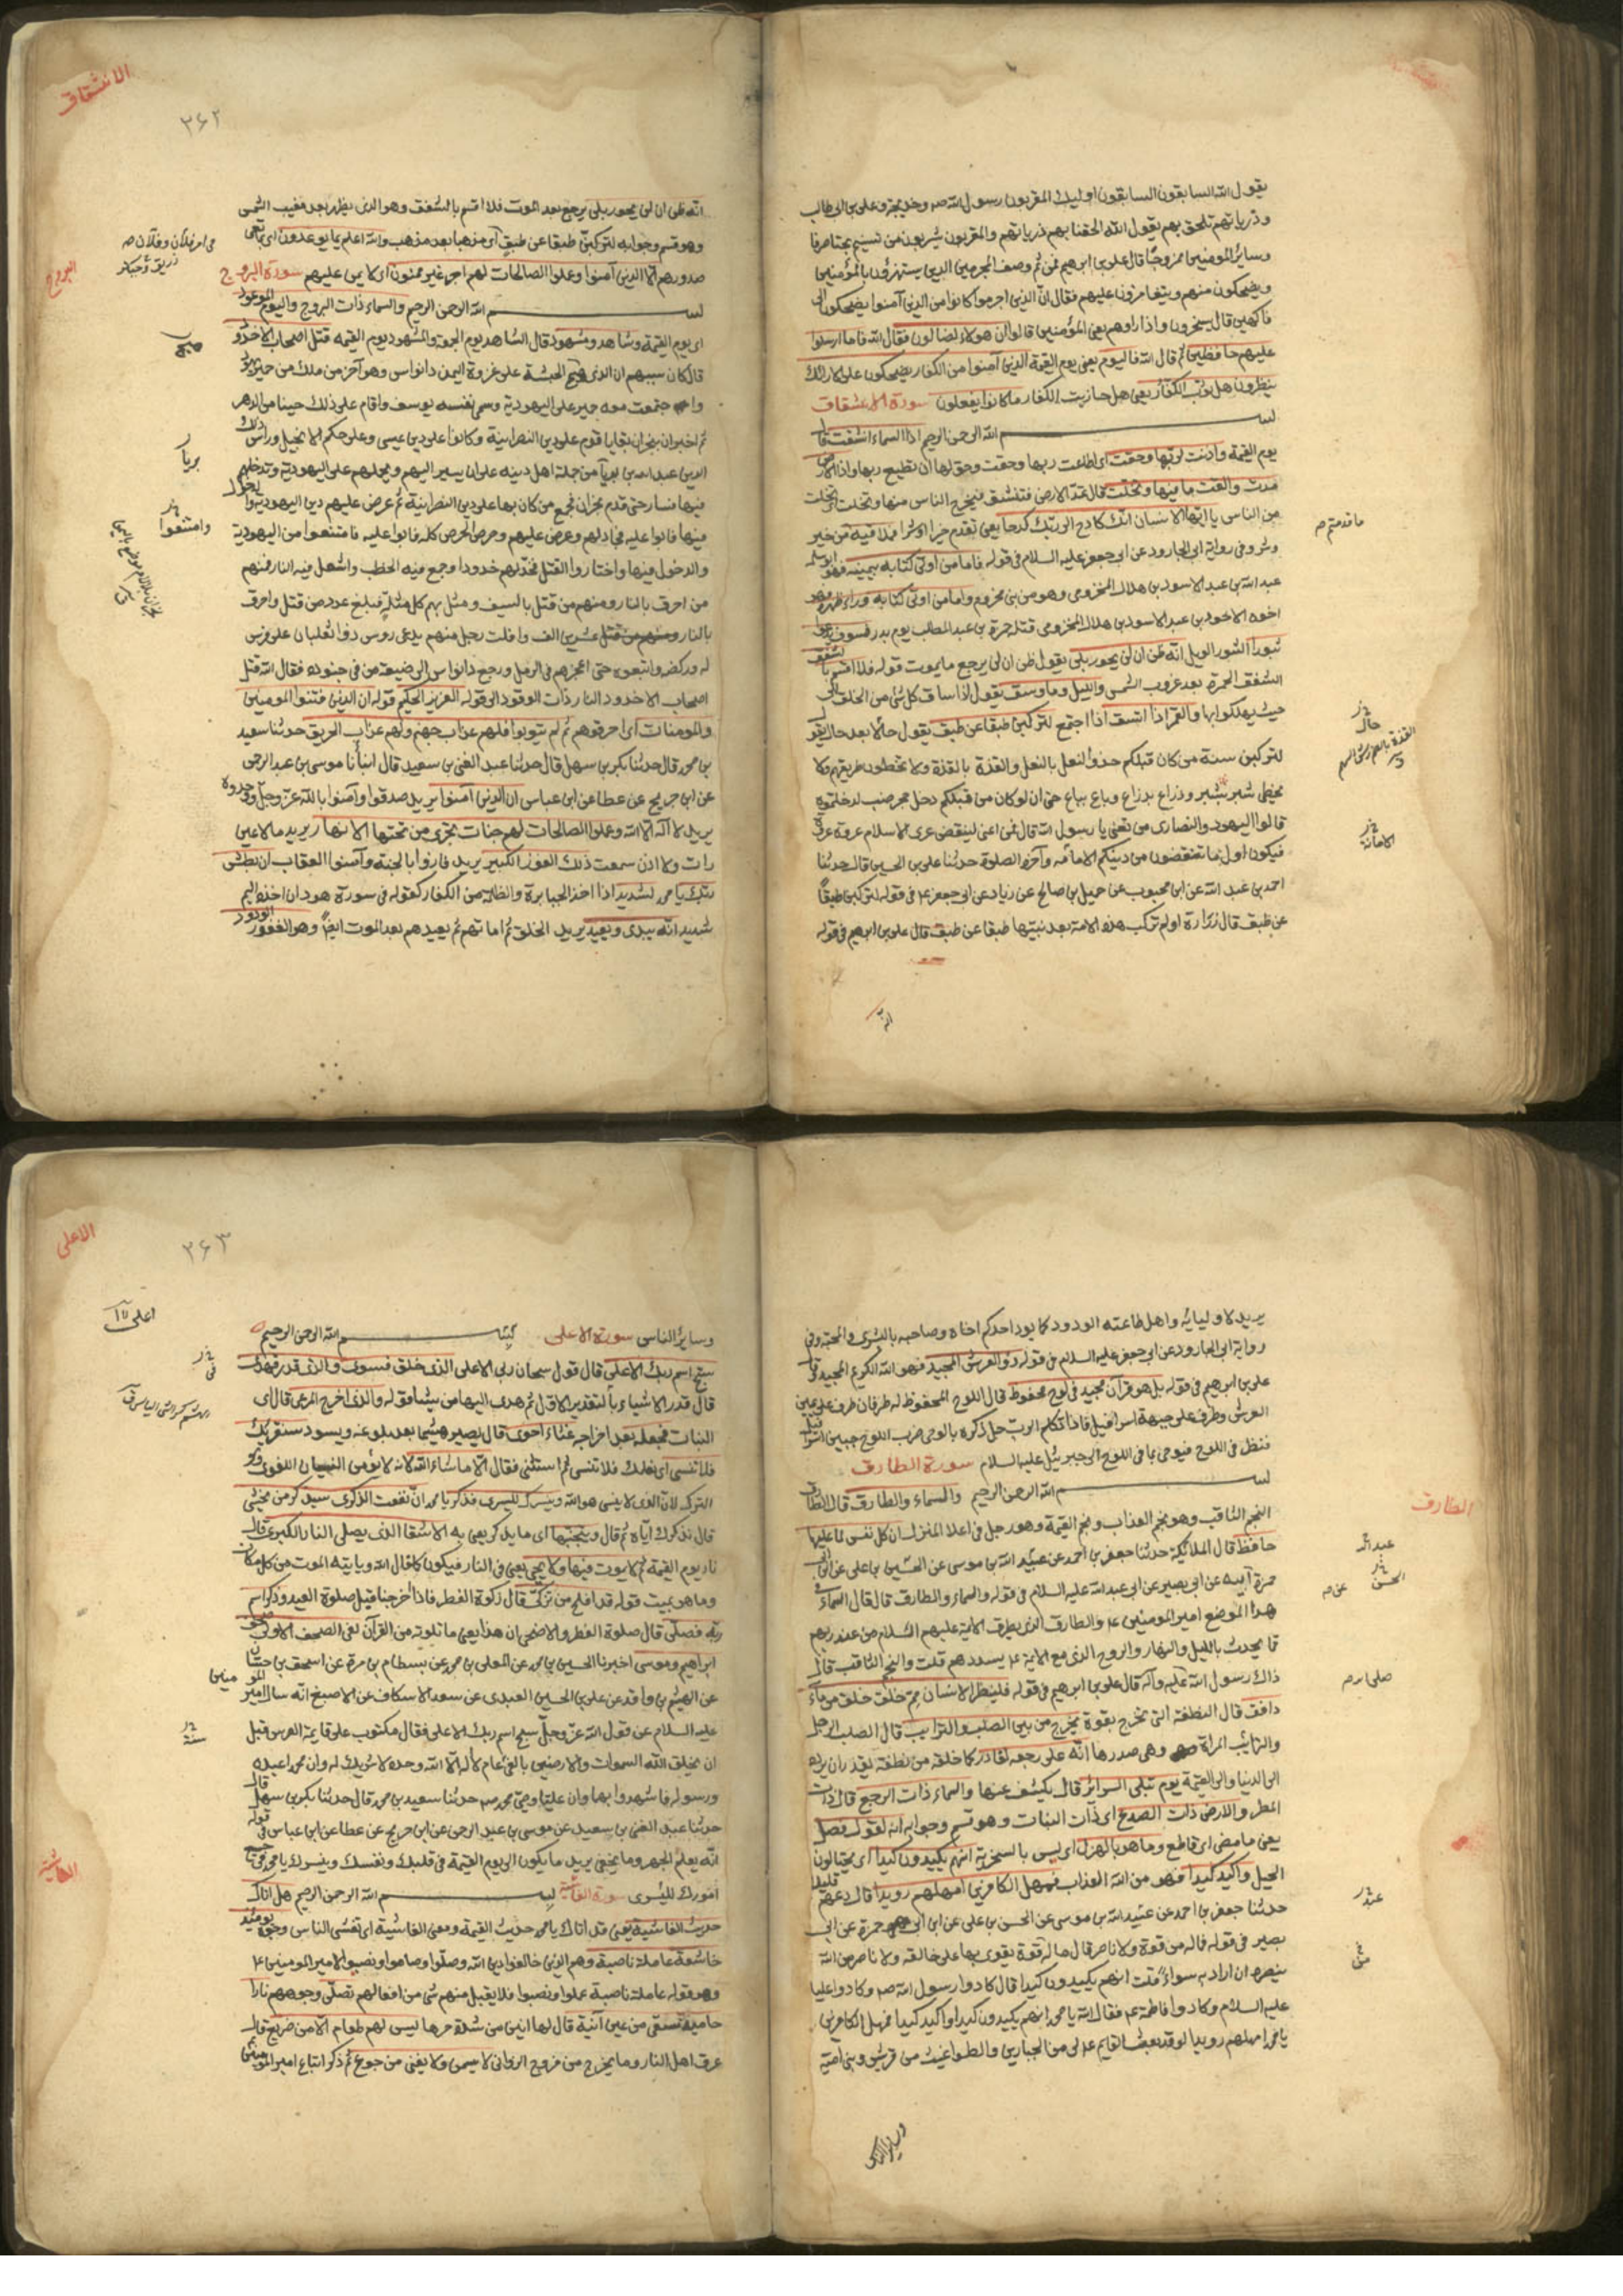 يقول الله السابقون السابقون اوليك المقربون رسول الله صه وخديجة وعلي بن ابي طالب
وذرياتهم تلحق بهم يقول الله الحقنا بهم ذرياتهم والمقربون يشربون من تسنيم بحتا صرفا
وساير المومنين ممزوجا قال علي بن ابرهيم ثم وصف المجرمين الذين يستهزؤن بالمؤمنين
ويضحكون منهم ويتغامزون عليهم فقال ان الذين اجرموا كانوا من الذين آمنوا يضحكون الى
فاكهين قال يسخرون واذا راوهم يعني المؤمنين قالوا ان هولاء لضالون فقال الله فما ارسلوا
عليهم حافظين ثم قال الله فاليوم يعني يوم القيمة الذين آمنوا من الكفار يضحكون على الارائك
ينظرون هل ثوب الكفار يعني هل جازيت الكفار ما كانوا يفعلون سورة الانشقاق
بسم الله الرحمن الرحيم اذا السماء انشقت قال
يوم القيمة واذنت لربها وحقت اى اطاعت ربها وحقت وحق لها ان تطيع ربها واذا الارض
مدت والقت ما فيها وتخلت قال تمد الارض فتنشق فيخرج الناس منها وتخلت اى تخلت
من الناس يا ايها الانسان انك كادح الى ربك كدحا يعني تقدم خيرا او شرا فملاقيه من خير
وشر وفي رواية ابى الجارود عن ابى جعفر عليه السلام في قوله فاما من اوتى كتابه بيمينه فهو ابو سلمة
عبد الله بن عبد الاسود بن هلال المخزومى وهو من بنى مخزوم واما من اوتى كتابه وراء ظهره فهو
اخوه الاسود بن عبد الاسود بن هلال المخزومى قتله حمزة بن عبد المطلب يوم بدر فسوف يدعوا
ثبورا الثبور الويل انه ظن ان لن يحور بلى يقول ظن ان لن يرجع ما يموت قوله فلا اقسم بالشفق
الشفق الحمرة بعد غروب الشمس والليل وما وسق يقول اذا ساق كل شئ من الخلق الى
حيث يهلكوا بها والقمر اذا اتسق اذا اجتمع لتركبن طبقا عن طبق يقول حالا بعد حال يقول
لتركبن سنة من كان قبلكم حذو النعل بالنعل والقذة بالقذة ولا تخطون طريقهم ولا
يخطى شبر بشبر وذراع بذراع وباع بباع حتى ان لو كان من قبلكم دخل حجر ضب لدخلتموه
قالوا اليهود والنصارى من تعنى يا رسول الله قال فمن اعنى لينقض عرى الاسلام عروة عروة
فيكون اول ما تنقضون من دينكم الامامه وآخره الصلوة حدثنا علي بن الحسين قال حدثنا
احمد بن عبد الله عن ابن محبوب عن جميل بن صالح عن زياد عن ابي جعفر ع في قوله لتركبن طبقا
عن طبق قال زرارة اولم تركب هذه الامة بعد نبيها طبقا عن طبق قال علي بن ابرهيم في قوله
انه
ما قدمتم ص
حال
الامانة
الانشقاق
٢۶٢
انه ظن ان لن يحور بلى يرجع بعد الموت فلا اقسم بالشفق وهو الذى يظهر بعد مغيب الشمس
وهو قسم وجوابه لتركبن طبقا عن طبق اى مذهبا بعد مذهب والله اعلم بما يوعدون اى بما تعى
صدورهم الا الذين آمنوا وعملوا الصالحات لهم اجر غير ممنون اى لا يمن عليهم سورة البروج
بسم الله الرحمن الرحيم والسماء ذات البروج واليوم الموعود
اى يوم القيمة وشاهد ومشهود قال الشاهد يوم الجمعة والمشهود يوم القيمه قتل اصحاب الاخدود
قال كان سببهم ان الذى هيج الحبشة على غزوة اليمن ذانواس وهو آخر من ملك من حمير تهود
واجتمعت معه حمير على اليهودية وسمى نفسه يوسف واقام على ذلك حينا من الدهر
ثم اخبر ان بنجران بقايا قوم على دين النصرانية وكانوا على دين عيسى وعلى حكم الانجيل وراس ذلك
الدين عبد الله بن بريا من جملة اهل دينه على ان يسير اليهم ويحملهم على اليهودية ويدخلهم
فيها فسار حتى قدم نجران فجمع من كان بها على دين النصرانية ثم عرض عليهم دين اليهودية والدخول
فيها فابوا عليه فجادلهم وعرض عليهم وحرص الحرص كله فابوا عليه فامتنعوا من اليهودية
والدخول فيها واختاروا القتل فخد لهم خدودا وجمع فيه الحطب واشعل فيه النار فمنهم
من احرق بالنار ومنهم من قتل بالسيف ومثل بهم كل مثلة فبلغ عدد من قتل واحرق
بالنار عشرين الف وافلت رجل منهم يدعى روس ذو ثعلبان على فرس
له وركضه واتبعوه حتى اعجزهم في الرمل ورجع ذانواس الى ضيعة من في جنوده فقال الله قتل
اصحاب الاخدود النار ذات الوقود الى قوله العزيز الحكيم قوله ان الذين فتنوا المومنين
والمومنات اى احرقوهم ثم لم يتوبوا فلهم عذاب جهنم ولهم عذاب الحريق حدثنا سعيد
بن محمد قال حدثنا بكر بن سهل قال حدثنا عبد الغنى بن سعيد قال انبأنا موسى بن عبد الرحمن
عن ابن جريح عن عطا عن ابن عباس ان الذين آمنوا يريد صدقوا وآمنوا بالله عز وجل ووحدوه
يريد لا اله الا الله وعملوا الصالحات لهم جنات تجرى من تحتها الانهار يريد ما لا عين
رات ولا اذن سمعت ذلك الفوز الكبير يريد فازوا بالجنة وآمنوا العقاب ان بطش
ربك يا محمد لشديد اذا اخذ الجبابرة والظلمة من الكفار كقوله في سورة هود ان اخذه اليم
شديد انه يبدى ويعيد يريد الخلق ثم اماتهم ثم يعيدهم بعد الموت ايضا وهو الغفور الودود
البروج
بريا
وامتنعوا
يريد لاوليائه واهل طاعته الودود كما يود احدكم اخاه وصاحبه بالبشرى والمحبة وفي
رواية ابى الجارود عن ابى جعفر عليه السلام في قوله ذو العرش المجيد فهو الله الكريم المجيد قال
علي بن ابرهيم في قوله بل هو قرآن مجيد في لوح محفوظ قال اللوح المحفوظ له طرفان طرف على يمين
العرش وطرف على جبهة اسرافيل فاذا تكلم الرب جل ذكره بالوحى ضرب اللوح جبين اسرافيل
فنظر في اللوح فيوحى بما في اللوح الى جبرئيل عليه السلام سورة الطارق
بسم الله الرحمن الرحيم والسماء والطارق قال الطارق
النجم الثاقب وهو نجم العذاب ونجم القيمة وهو زحل في اعلا المنزل ان كل نفس لما عليها
حافظ قال الملائكة حدثنا جعفر بن احمد عن عبيد الله بن موسى عن الحسين بن على عن ابن ابى
حمزة ابيه عن ابى بصير عن ابى عبد الله عليه السلام في قوله والسماء والطارق قال قال السماء في
هذا الموضع امير المومنين ع والطارق الذى يطرق الائمة عليهم السلام من عند ربهم
مما يحدث بالليل والنهار والروح الذى مع الائمة ع يسددهم قلت والنجم الثاقب قال
ذلك رسول الله عليه وآله قال علي بن ابرهيم في قوله فلينظر الانسان مم خلق خلق من ماء
دافق قال النطفة التى تخرج بقوة يخرج من بين الصلب والترائب قال الصلب الرجل
والترائب المراة وهى صدرها انه على رجعه لقادر كما خلقه من نطفة يقدر ان يرده
الى الدنيا والى القيمة يوم تبلى السرائر قال يكشف عنها والسماء ذات الرجع قال ذات
المطر والارض ذات الصدع اى ذات النبات وهو قسم وجوابه انه لقول فصل
يعني ما مضى اى قاطع وما هو بالهزل اى ليس بالسخرية انهم يكيدون كيدا اى يحتالون
الحيل واكيد كيدا فهو من الله العذاب فمهل الكافرين امهلهم رويدا قال دعهم قليلا
حدثنا جعفر بن احمد عن عبيد الله بن موسى عن الحسن بن على عن ابن ابى حمزة عن ابى
بصير في قوله فما له من قوة ولا ناصر قال ما له قوة يقوى بها على خالقه ولا ناصر من الله
ينصره ان اراد به سواء قلت انهم يكيدون كيدا قال كادوا رسول الله صه وكادوا عليا
عليه السلام وكادوا فاطمة ع فقال الله يا محمد انهم يكيدون كيدا واكيد كيدا فمهل الكافرين
يا محمد امهلهم رويدا لو قد بعث القايم ع لى من الجبارين والطواغيت من قريش وبنى امية
وساير الناس
الطارق
عبد الله
الحسن
عن ص
الاعلى
٢۶٣
وساير الناس سورة الاعلى بسم الله الرحمن الرحيم
سبح اسم ربك الاعلى قال قول سبحان ربى الاعلى الذى خلق فسوى والذى قدر فهدى
قال قدر الاشياء بالتقدير الاول ثم هدى اليها من يشا قوله والذى اخرج المرعى قال اى
النبات فجعله بعد اخراجه غثاء احوى قال يصير هشيما بعد بلوغه ويسود سنقرئك
فلا تنسى اى نعلمك فلا تنسى ثم استثنى فقال الا ما شاء الله لانه لا يؤمن النسيان اللغوى وهو
الترك لان الذى لا ينسى هو الله ونيسرك لليسرى فذكر يا محمد ان نفعت الذكرى سيذكر من يخشى
قال نذكرك اياه ثم قال ويتجنبها اى ما يذكر يعنى به الاشقا الذى يصلى النار الكبرى قال
نار يوم القيمة ثم لا يموت فيها ولا يحيى يعنى في النار فيكون كما قال الله وياتيه الموت من كل مكان
وما هو بميت قوله قد افلح من تزكى قال زكوة الفطر فاذا اخرجها قبل صلوة العيد وذكر اسم
ربه فصلى قال صلوة الفطر والاضحى ان هذا يعنى ما تلوته من القرآن لفى الصحف الاولى صحف
ابراهيم وموسى اخبرنا الحسين بن محمد عن المعلى بن محمد عن بسطام بن مرة عن اسحق بن حسان
عن الهيثم بن واقد عن علي بن الحسين العبدى عن سعد الاسكاف عن الاصبغ انه سال امير المومنين
عليه السلام عن قول الله عز وجل سبح اسم ربك الاعلى فقال مكتوب على قايمة العرش قبل
ان يخلق الله السموات والارضين بالفى عام لا اله الا الله وحده لا شريك له وان محمدا عبده
ورسوله فاشهدوا بها وان عليا وصى محمد صه حدثنا سعيد بن محمد قال حدثنا بكر بن سهل قال
حدثنا عبد الغنى بن سعيد عن موسى بن عبد الرحمن عن ابن جريح عن عطا عن ابن عباس في قوله
انه يعلم الجهر وما يخفى يريد ما يكون الى يوم القيمة في قلبك ونفسك ونيسرك يا محمد في جميع
امورك لليسرى سورة الغاشية بسم الله الرحمن الرحيم هل اتاك
حديث الغاشية يعنى قد اتاك يا محمد حديث القيمة ومعنى الغاشية اى تغشى الناس وجوه يومئذ
خاشعة عاملة ناصبة وهم الذين خالفوا دين الله وصلوا وصاموا ونصبوا لامير المومنين ع
وهو قوله عاملة ناصبة عملوا ونصبوا فلا يقبل منهم شى من افعالهم تصلى وجوههم نارا
حامية تسقى من عين آنية قال لها انين من شدة حرها ليس لهم طعام الا من ضريع قال
عرق اهل النار وما يخرج من فروج الزوانى لا يسمن ولا يغنى من جوع ثم ذكر اتباع امير المومنين
الغاشية